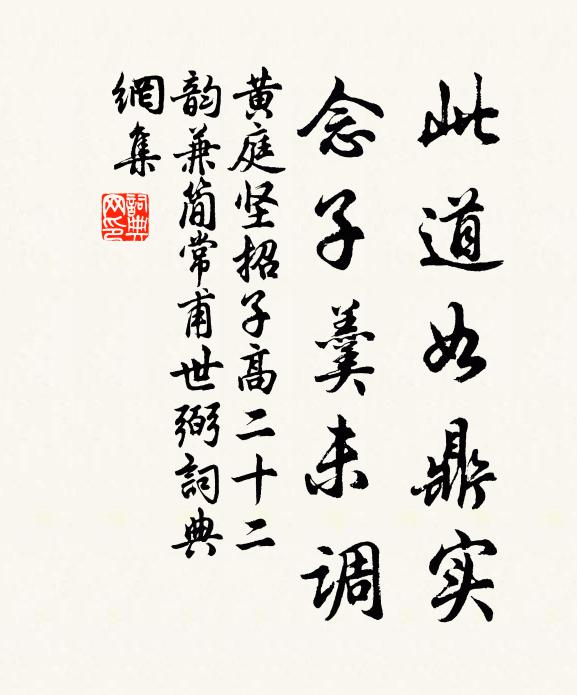 此道如鼎实
念子羹未调
黄庭坚招子高二十二
韵兼简常甫世弼詞典
網集
詞典
网印